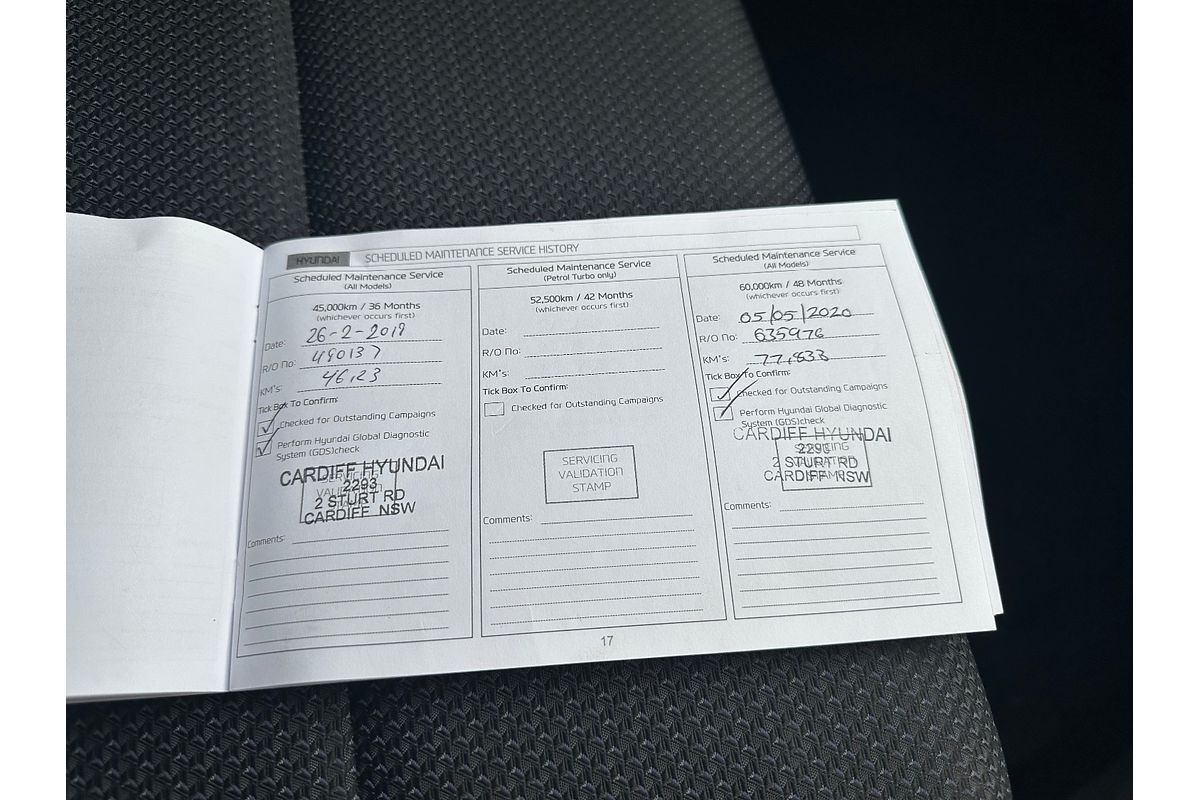 HYUNDAI SCHEDULED MAINTENANCE SERVICE HISTORY
Scheduled Maintenance Service
(All Models)
45,000km / 36 Months
(whichever occurs first)
Date: 26-2-2019
R/O No: 490137
KM's: 46,123
Tick Box To Confirm:
Checked for Outstanding Campaigns
Perform Hyundai Global Diagnostic
System (GDS)check
CARDIFF HYUNDAI
2293
2 STURT RD
CARDIFF NSW
SERVICING
VALIDATION
STAMP
Comments:
Scheduled Maintenance Service
(Petrol Turbo only)
52,500km / 42 Months
(whichever occurs first)
Date:
R/O No:
KM's:
Tick Box To Confirm:
Checked for Outstanding Campaigns
SERVICING
VALIDATION
STAMP
Comments:
Scheduled Maintenance Service
(All Models)
60,000km / 48 Months
(whichever occurs first)
Date: 05/05/2020
R/O No: 635976
KM's: 77,833
Tick Box To Confirm:
Checked for Outstanding Campaigns
Perform Hyundai Global Diagnostic
System (GDS)check
CARDIFF HYUNDAI
2293
2 STURT RD
CARDIFF NSW
SERVICING
VALIDATION
STAMP
Comments:
17